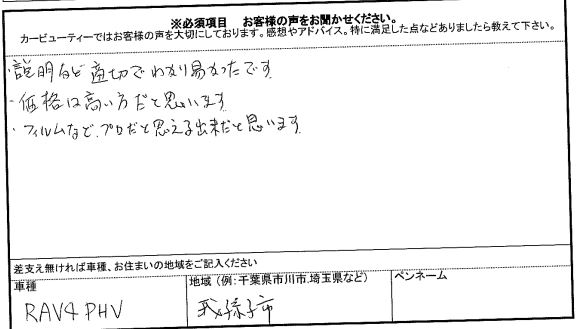 ※必須項目 お客様の声をお聞かせください。
カービューティーではお客様の声を大切にしております。感想やアドバイス。特に満足した点などありましたら教えて下さい。
・説明など適切でわかり易かったです
・価格は高い方だと思います
・フィルムなど、プロだと思える出来だと思います
差支え無ければ車種、お住まいの地域をご記入ください
車種
地域（例：千葉県市川市.埼玉県など）
ペンネーム
RAV4 PHV
我孫子市